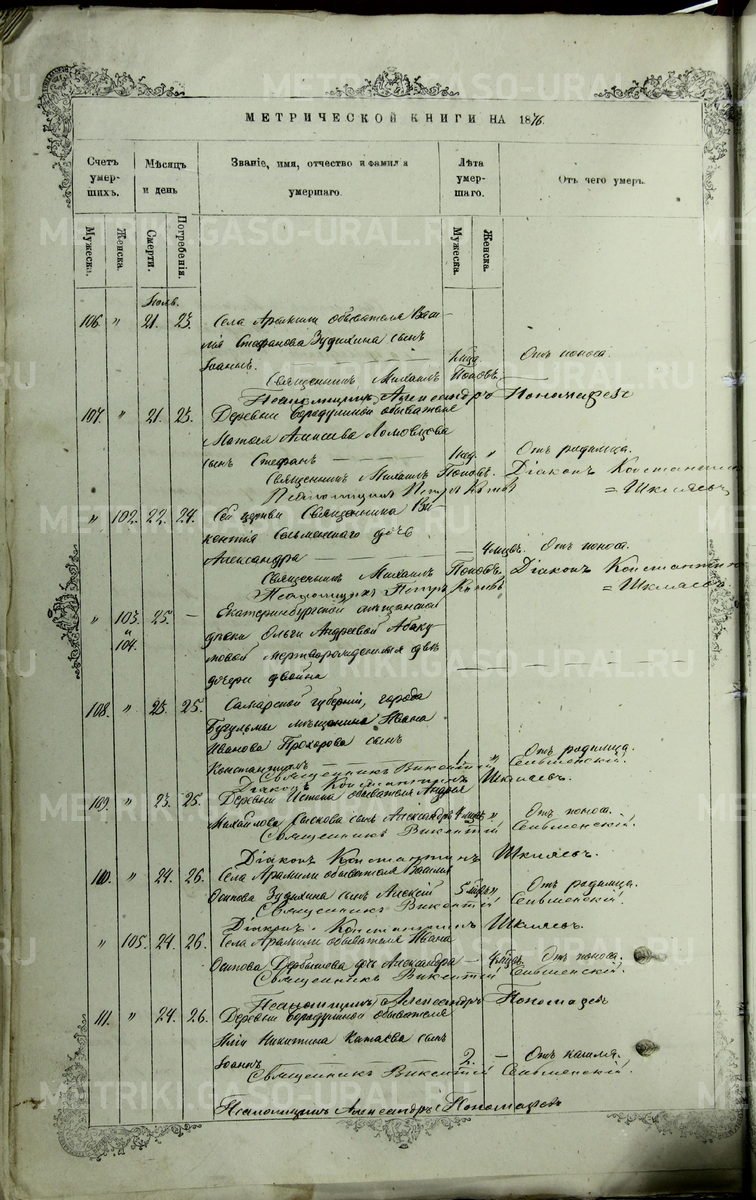 МЕТРИЧЕСКОЙ КНИГИ НА 1876.
Счетъ умершихъ.
Мѣсяцъ и день
Званіе, имя, отчество и фамилія умершаго.
Лѣта умершаго.
Отъ чего умеръ.
Мужеска.
Женска.
Смерти.
Погребенія.
Мужеска.
Женска.
106. " 21. 23. Села Арамили обывателя Васи-
лія Стефанова Зудихина сынъ
Іоаннъ. Отъ поноса.
Священникъ Михаилъ Поповъ.
Псаломщикъ Александръ Пономаревъ
107. " 21. 23. Деревни Бородулиной обывателя
Матвѣя Ломовцева
сынъ Стефанъ " Отъ родимца.
Священникъ Михаилъ Поповъ. Діаконъ Константинъ
Псаломщикъ Петръ = Шкляевъ
" 102. 22. 24. Сей церкви Священника Ви-
кентія дочь
Александра 4 мцвъ. Отъ поноса.
Священникъ Михаилъ Поповъ. Діаконъ Константинъ
Псаломщикъ Петръ = Шкляевъ.
" 103. 25. — Екатеринбургской мѣщанской
" 104. дѣвки Ольги Андреевой Абаку-
мовой мертворожденныя двѣ
дочери двойни
108. " 23. 25. Самарской губерніи, города
Бугульмы мѣщанина Ивана
Иванова Прохорова сынъ
Константинъ 1. " Отъ родимца.
Священникъ Викентій
Діаконъ Константинъ Шкляевъ.
109. " 23. 25. Деревни Истока обывателя Андрея
Михайлова сынъ Александръ 4 мцвъ " Отъ поноса.
Священникъ Викентій
Діаконъ Константинъ Шкляевъ.
110. " 24. 26. Села Арамили обывателя Василія
Осипова Зудихина сынъ Алексій 5 мцвъ " Отъ родимца.
Священникъ Викентій
Діаконъ Константинъ Шкляевъ
" 105. 24. 26. Села Арамили обывателя Ивана
Осипова Дербышева дочь Александра — 4 мцвъ. Отъ поноса.
Священникъ Викентій
Псаломщикъ Александръ Пономаревъ
111. " 24. 26. Деревни Бородулиной обывателя
Иліи Никитина Катаева сынъ
Іоаннъ 2. — Отъ кашля.
Священникъ Викентій
Псаломщикъ Александръ Пономаревъ
METRIKI.GASO-URAL.RU